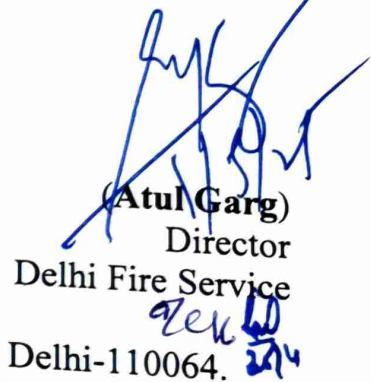 (Atul Garg)
Director
Delhi Fire Service
Delhi-110064.